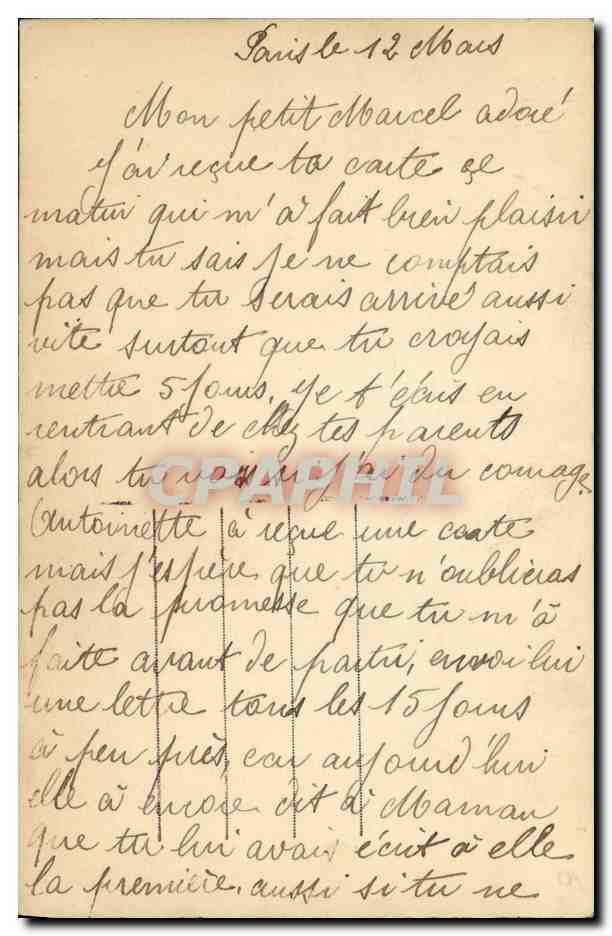 Paris le 12 Mars
Mon petit Marcel adoré
J'ai reçue ta carte çe
matin qui m'à fait bien plaisir
mais tu sais je ne comptais
pas que tu serais arrivé aussi
vite surtout que tu croyais
mettre 5 Jours. Je t'écris en
rentrant de chez tes parents
alors tu vois si j'ai du courage
CPAPHIL
Antoinette à reçue une carte
mais j'espère que tu n'oublieras
pas la promesse que tu m'à
faite avant de partir, envoi lui
une lettre tous les 15 Jours
à peu près, car aujourd'hui
elle à encore dit à Maman
que tu lui avais écrit à elle
la première. aussi si tu ne